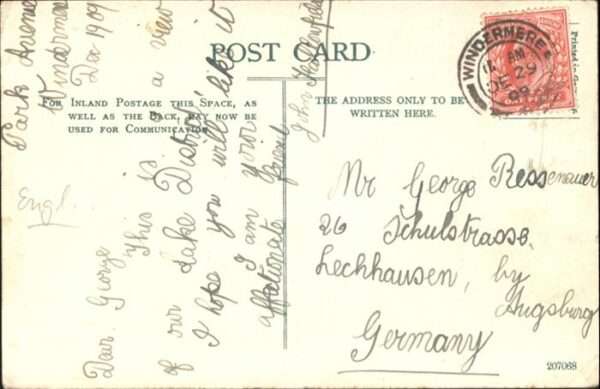 POST CARD
FOR INLAND POSTAGE THIS SPACE, AS
WELL AS THE BACK, MAY NOW BE
USED FOR COMMUNICATION.
THE ADDRESS ONLY TO BE
WRITTEN HERE.
WINDERMERE
11 AM
DE 29
09
Printed in
Park Avenue
Windermere
Dec 1909
Dear George
This is a view
of our Lake District
I hope you will like it
I am your
affectionate friend
John
Engl.
Mr George Ressenauer
26 Schulstrasse.
Lechhausen, by
Augsburg
Germany
207068